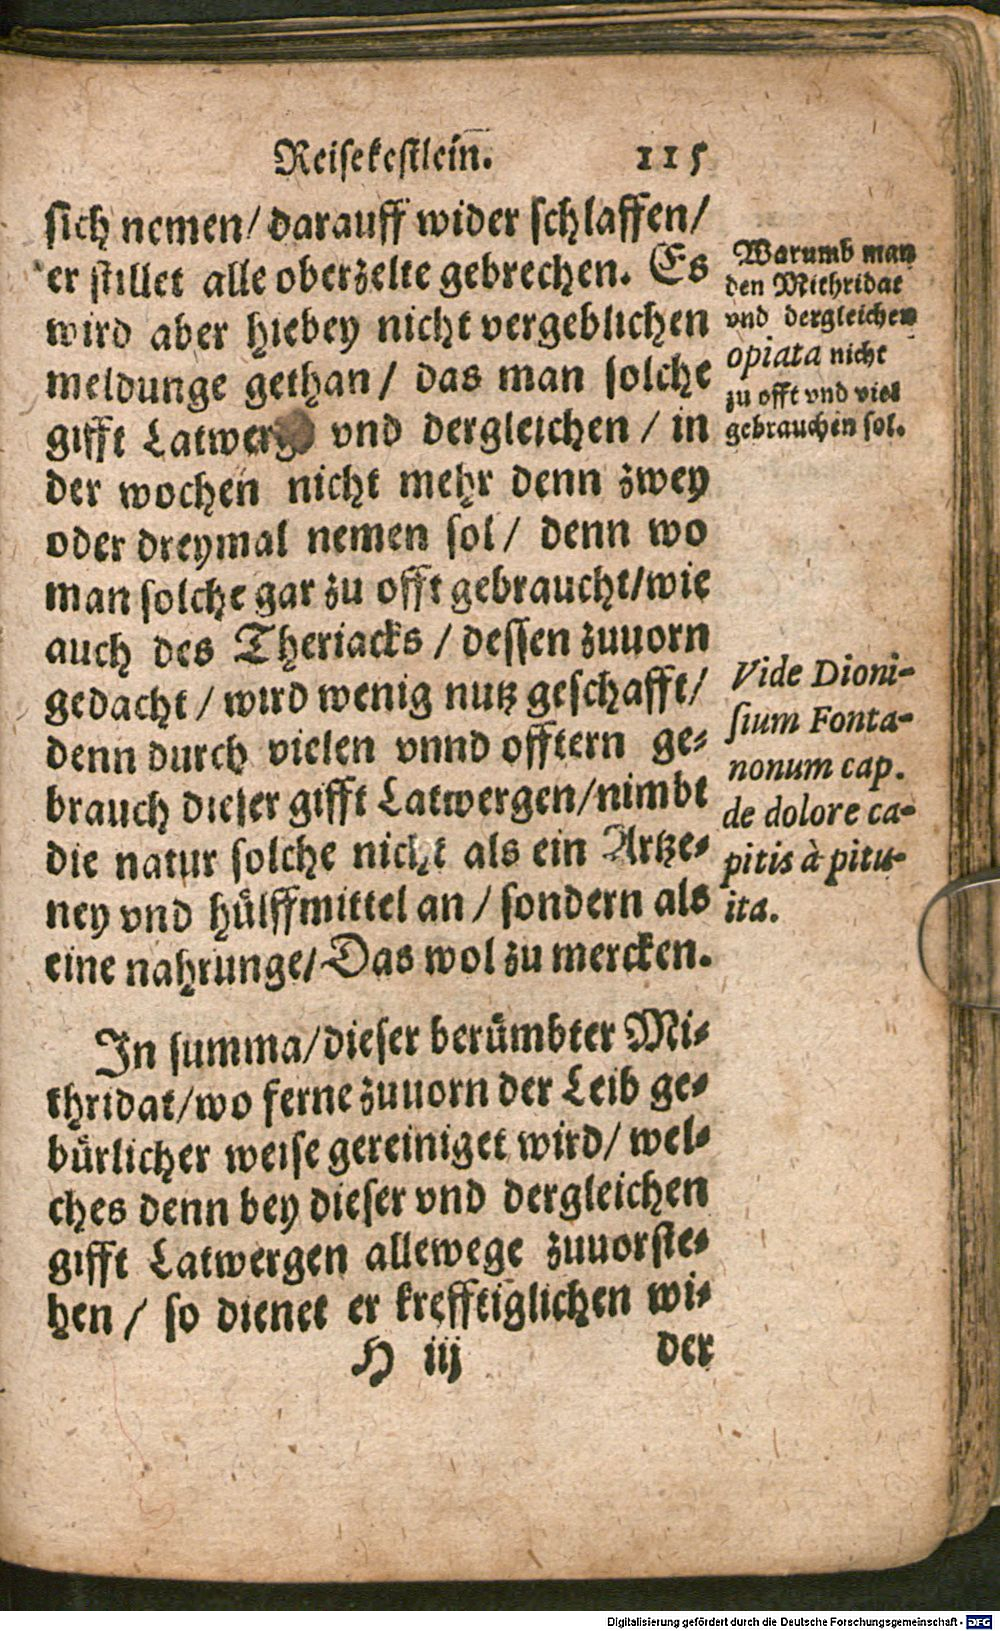 Reisekestlein̄. 115
sich nemen/ darauff wider schlaffen/
er stillet alle oberzelte gebrechen. Es
wird aber hiebey nicht vergeblichen
meldunge gethan/ das man solche
gifft Latwerg vnd dergleichen / in
der wochen nicht mehr denn zwey
oder dreymal nemen sol/ denn wo
man solche gar zu offt gebraucht/wie
auch des Theriacks / dessen zuuorn
gedacht / wird wenig nutz geschafft/
denn durch vielen vnnd offtern ge⸗
brauch dieser gifft Latwergen/nimbt
die natur solche nicht als ein Artze⸗
ney vnd hülffmittel an / sondern als
eine nahrunge/ Das wol zu mercken.
In summa/dieser berümbter Mi⸗
thridat/wo ferne zuuorn der Leib ge⸗
bürlicher weise gereiniget wird/ wel⸗
ches denn bey dieser vnd dergleichen
gifft Latwergen allewege zuuorste⸗
hen / so dienet er krefftiglichen wi⸗
H iij der
Warumb man
den Mithridat
vnd dergleichen
opiata nicht
zu offt vnd viel
gebrauchen sol.
Vide Dioni-
sium Fonta-
nonum cap.
de dolore ca-
pitis à pitu-
ita.
Digitalisierung gefördert durch die Deutsche Forschungsgemeinschaft - DFG